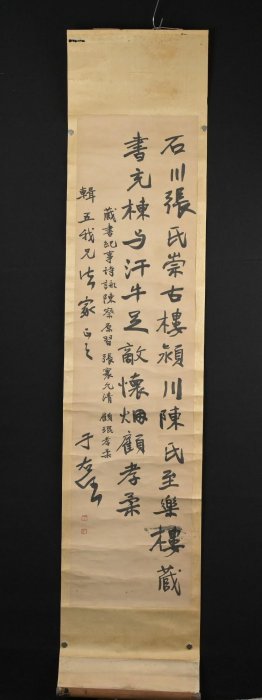 石川張氏崇古樓潁川陳氏至樂樓藏
書充棟与汗牛足敵懷烟顧孝柔
藏書紀事詩詠陳察原習 張寰允清 顧珉孝柔
輯五我兄法家正之
于右任